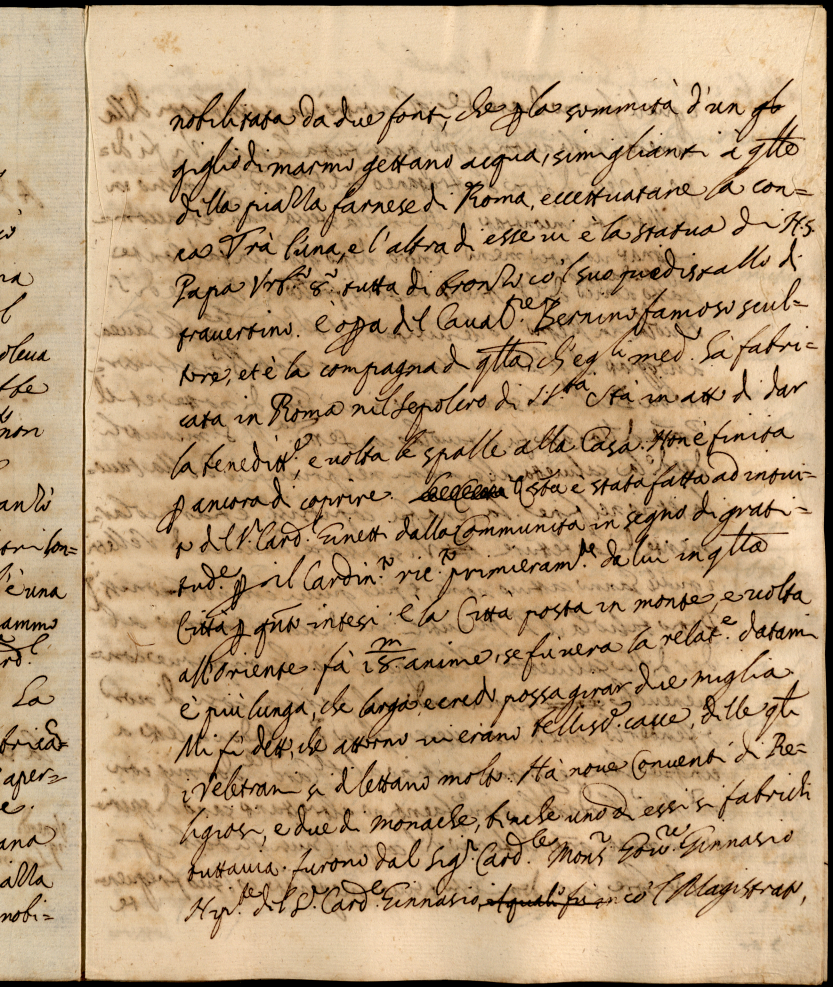 ò
na
l
oleua
tbe
non
anzi
tri lon=
l'è una
ammo
ard.l
La
brica=
aper=
e.
ana
azza
nobi=
nobilitata da due fonti, che p la sommità d'un
giglio di marmo gettano acqua, simiglianti à qlle
della piazza farnese di Roma, eccettuatane la con=
ca. Trà l'una, e l'altra di esse ui è la statua di N.S.
Papa Urb.o 8.o tutta di bronzo co 'l suo piedistallo di
trauertino. È opa del Caual.re Bernino famoso scul=
tore, et è la compagna di qlla, ch'egli med.o hà fabri=
cata in Roma nel sepolcro di S. S.tà Stà in atto di dar
la beneditt.e, e uolta le spalle alla Casa. Non è finita
p ancora di coprire. Qsta è stata fatta ad instui=
a del S.r Card. Ginetti dalla Communità in segno di grati=
tud.e p il Cardin.to ric.to primieram.te da lui in qlla
Città p qnto intesi. È la Città posta in monte, e uolta
all'oriente. fà 18 m anime, se fù uera la relat.e datami
è più lunga, che larga, e credo possa girar due miglia
Mi fù detto, che attorno ui erano belliss.e cacce, delle qli
i Veletrani si dilettano molto. Hà noue Conuenti di Re=
ligiosi, e due di monache, benche uno di essi si fabrichi
tuttauia. furono dal Sig.r Card.le Mons.r Gou.re Ginnasio
Nip.te del S.r Card.e Ginnasio, il quali fu co 'l Magistrato,